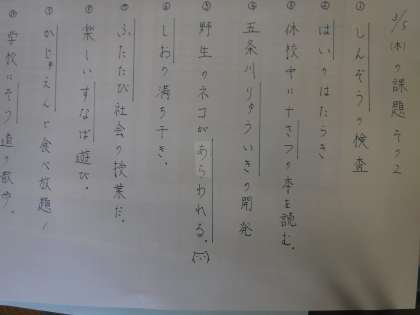 3/5(木)の課題 その2
① しんぞうの検査
② はいのはたらき
③ 休校中に十さつの本を読む。
④ 五条川りゅういきの開発
⑤ 野生のネコがあらわれる。
⑥ しおの満ち干き。
⑦ ふたたび社会の授業だ。
⑧ 楽しいすなば遊び。
⑨ かじゅえんで食べ放題!
⑩ 学校にそう道の散歩。